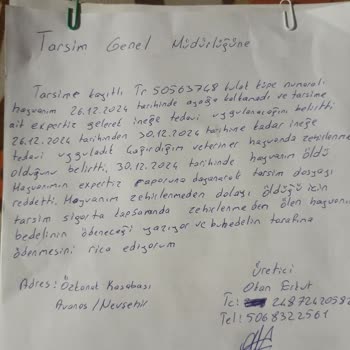 Tarsim Genel Müdürlüğüne
Tarsime kayıtlı Tr 50563748 bulat küpe numaralı
hayvanım 26.12.2024 tarihinde ayağa kalkamadı ve tarsime
ait expertiz gelerek ineğe tedavi uygulanacağını belirtti
26.12.2024 tarihinden 30.12.2024 tarihine kadar ineğe
tedavi uyguladık Çağırdığım veteriner hayvanda zehirlenme
olduğunu belirtti. 30.12.2024 tarihinde hayvanım öldü
Hayvanımın expertiz raporuna dayanarak tarsim dosyayı
reddetti. Hayvanım zehirlenmeden dolayı öldüğü için
tarsim sigorta kapsamında zehirlenmeden ölen hayvanın
bedelinin ödeneceği yazıyor ve bu bedelin tarafıma
ödenmesini rica ediyorum
Üretici
Adres: Özkonak Kasabası
Okan Erkut
Avanos/Nevşehir
Tc: 2487242058
Tel: 5068322561